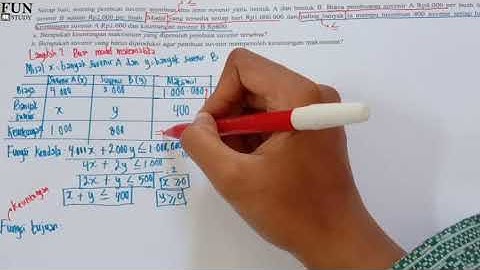 FUN
STUDY
Setiap hari, seorang pembuat suvenir membuat dua jenis suvenir yaitu suvenir A dan suvenir B. Biaya pembuatan suvenir A Rp4.000 per buah dan
suvenir B Rp2.000 per buah. Modal yang tersedia setiap hari Rp1.000.000 dan paling banyak ia mampu membuat 400 suvenir setiap hari.
Keuntungan suvenir A Rp1.000 dan keuntungan suvenir B Rp800.
a. Berapakah keuntungan maksimum yang diperoleh pembuat suvenir tersebut?
b. Berapakah suvenir yang harus diproduksi agar pembuat suvenir memperoleh keuntungan maksimum?
Langkah 1 Buat model matematika
Misal x: banyak suvenir A dan y: banyak suvenir B
Suvenir A (x) Suvenir B (y) Maksimal
Biaya 4.000 2.000 1.000.000
Banyak suvenir x y 400
Keuntungan 1.000 800
Fungsi kendala: 4.000x + 2.000y ≤ 1.000.000
4x + 2y ≤ 1.000 :2
2x + y ≤ 500 x ≥ 0
x + y ≤ 400 y ≥ 0
Keuntungan
Fungsi tujuan: